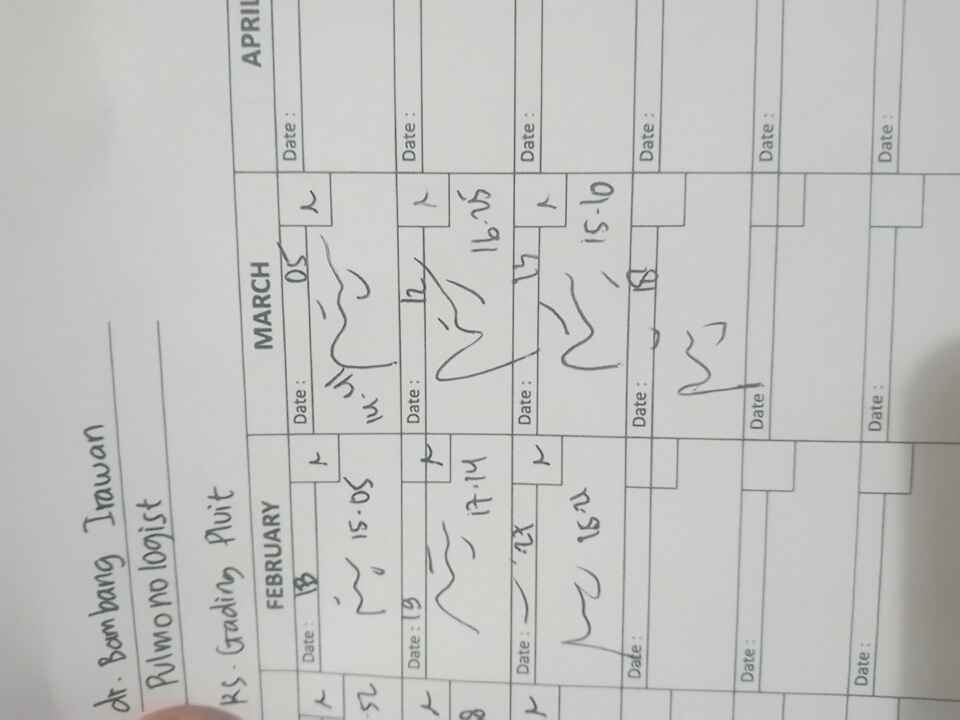 dr. Bambang Irawan
Pulmonologist
RS. Gading Pluit
FEBRUARY
MARCH
APRIL
52
Date : 13
15.05
Date : 05
Date :
Date : 19
17.14
Date : 12
16.25
Date :
8
Date :
Date :
15.10
Date :
Date :
Date : 18
Date :
Date :
Date :
Date :
Date :
Date :
Date :